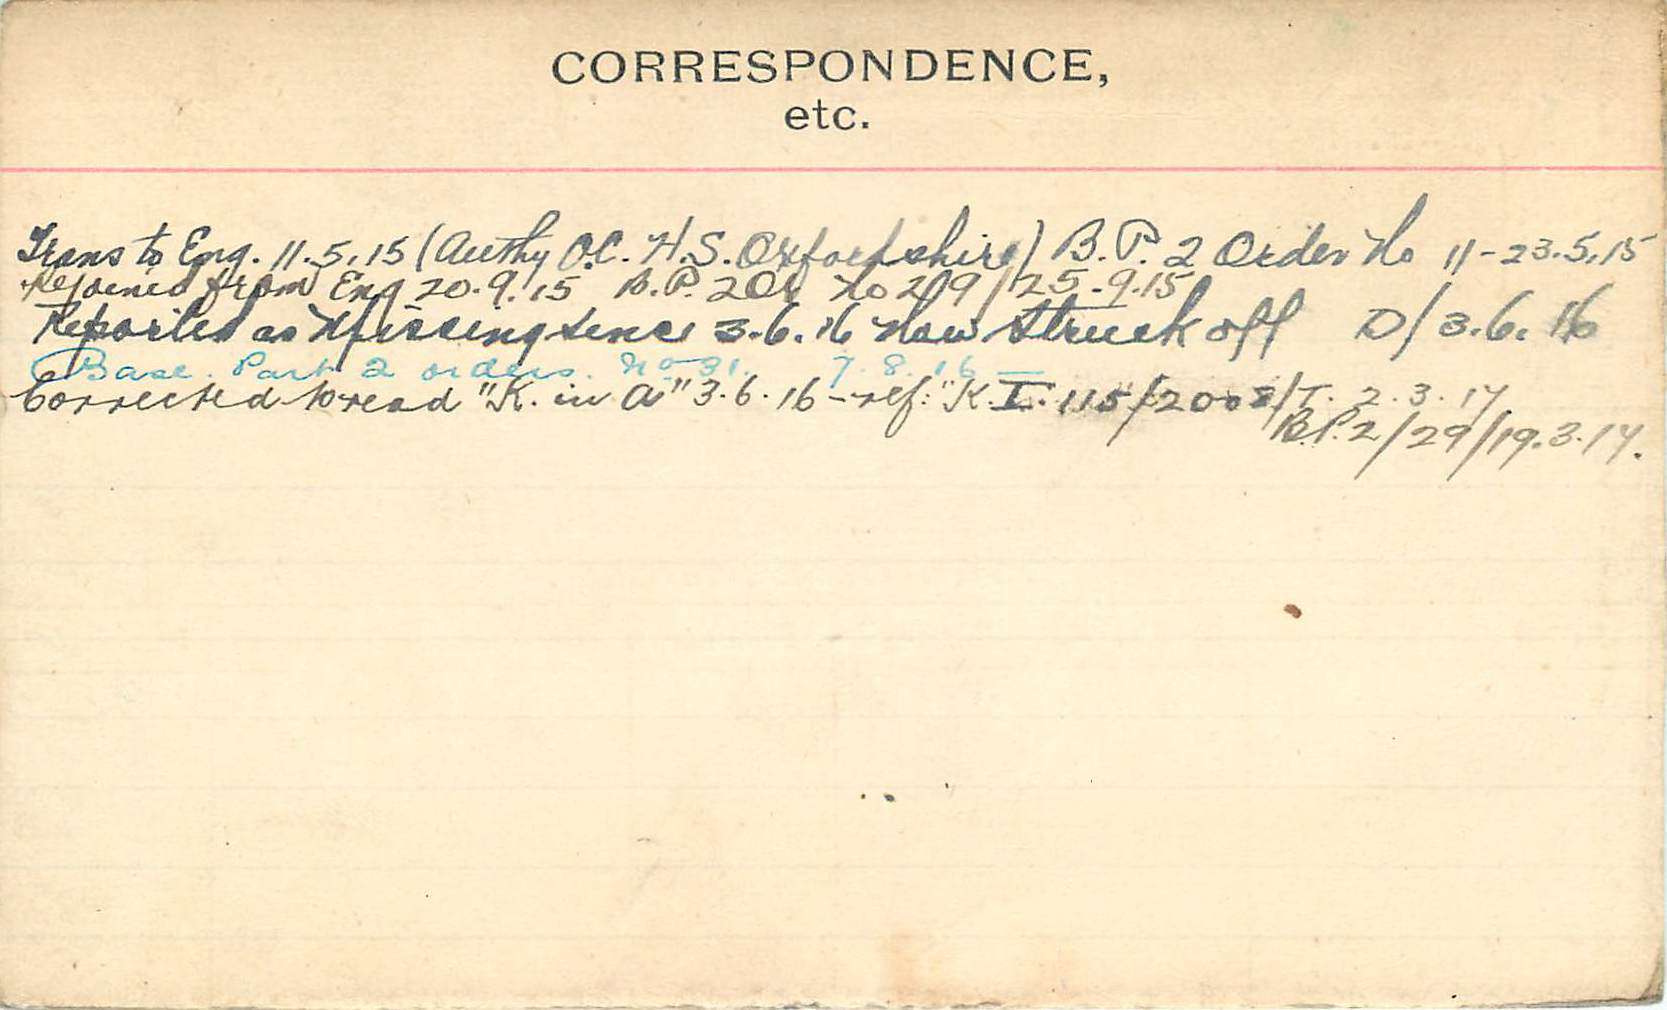 CORRESPONDENCE,
etc.
Trans to Eng. 11.5.15 (Authy O.C. H.S. Oxfordshire) B.P. 2 Order No 11-23.5.15
Rejoined from Eng 20.9.15 B.P. 2 Or No 29/25-9.15
Reported as Missing since 3-6.16 Now Struck off D/3.6.16
Base. Part 2 orders. No 31. 7.8.16 —
Corrected to read "K. in A" 3.6.16 - ref: "K I. 115/2008/T. 2.3.17
B.P.2/29/19.3.17.